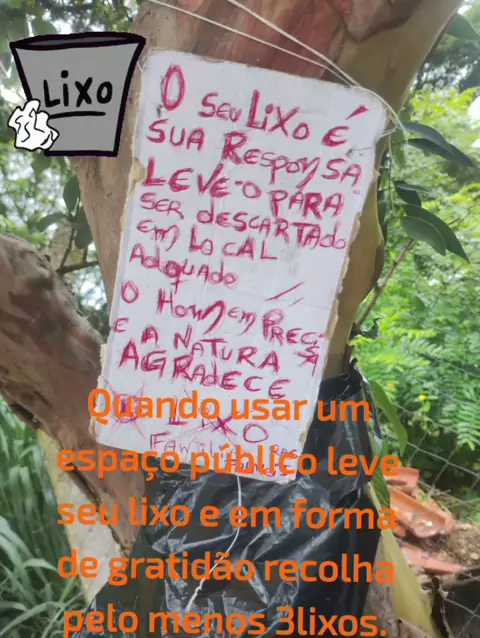 LiXo
O SEU LiXO É
SUA RESPONSA
LEVE-O PARA
SER DESCARTADO
EM LOCAL
ADQUADO
O HOMEM PRECIS
E A NATURA
AGRADECE
O LIXO
Quando usar um
espaço público leve
seu lixo e em forma
de gratidão recolha
pelo menos 3lixos.